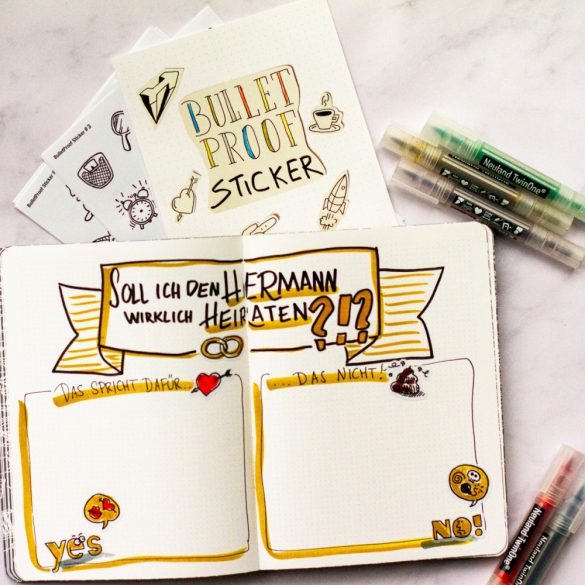 BulletProof Sticker # 3
BulletProof Sticker #
BULLET
PROOF
STICKER
Neuland TwinOne®
SOLL ICH DEN HERMANN
WIRKLICH HEIRATEN?!?
DAS SPRICHT DAFÜR...
... DAS NICHT!
yes
NO!
Neuland TwinOne®
Neuland TwinOne